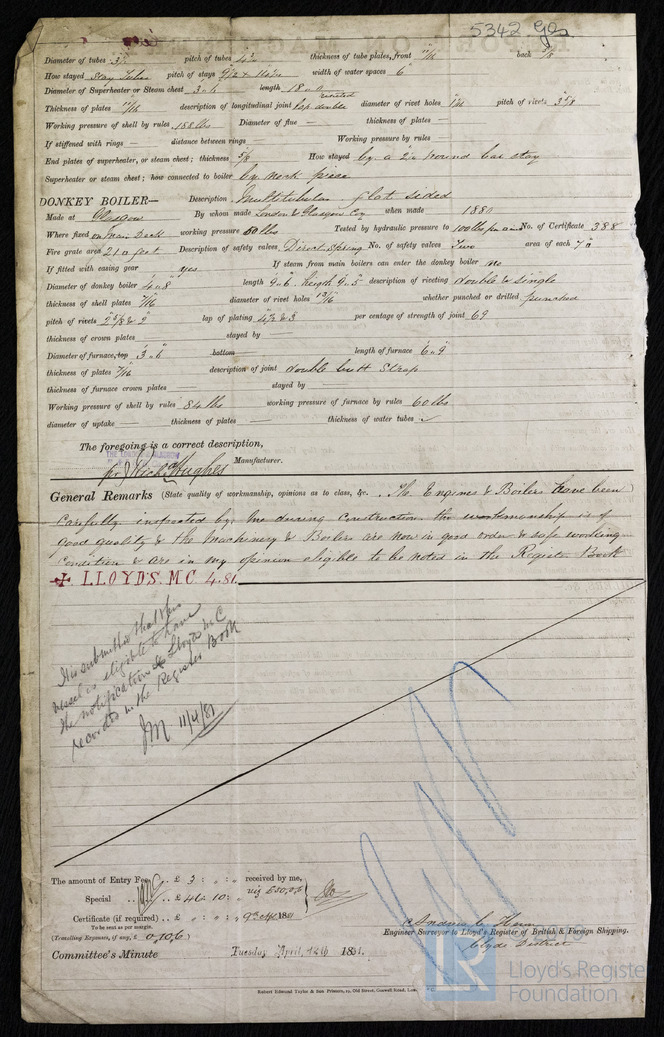 5342 Gls
Diameter of tubes 3½" pitch of tubes 4¾" thickness of tube plates, front 11/16" back
How stayed Stay Tubes pitch of stays width of water spaces 6"
Diameter of Superheater or Steam chest 3-0 length 18-0
Thickness of plates 11/16 description of longitudinal joint lap double riveted diameter of rivet holes pitch of rivets
Working pressure of shell by rules 158 lbs Diameter of flue — thickness of plates —
If stiffened with rings — distance between rings — Working pressure by rules —
End plates of superheater, or steam chest; thickness 5/8 How stayed by a 2¼ round bar stay
Superheater or steam chest; how connected to boiler by neck piece
DONKEY BOILER— Description Multitubular flat sided
Made at Glasgow By whom made London & Glasgow Coy when made 1880
Where fixed on Main Deck working pressure 50 lbs Tested by hydraulic pressure to 100 lbs No. of Certificate 388
Fire grate area 21 □ feet Description of safety valves Direct Spring No. of safety valves Two area of each 7 □"
If fitted with easing gear yes If steam from main boilers can enter the donkey boiler no
Diameter of donkey boiler 4-8 length 9-6 height 9-5 description of riveting double & single
thickness of shell plates 7/16 diameter of rivet holes 13/16 whether punched or drilled punched
pitch of rivets 2 5/8 & 2 lap of plating 4½ & 3 per centage of strength of joint 69
thickness of crown plates — stayed by —
Diameter of furnace, top 3-6 bottom length of furnace 6-9
thickness of plates 7/16 description of joint double butt Strap
thickness of furnace crown plates — stayed by —
Working pressure of shell by rules 54 lbs working pressure of furnace by rules 60 lbs
diameter of uptake — thickness of plates — thickness of water tubes
The foregoing is a correct description,
THE LONDON & GLASGOW
Hughes Manufacturer.
General Remarks (State quality of workmanship, opinions as to class, &c. The Engines & Boilers have been
carefully inspected by me during construction the workmanship is of
good quality & the Machinery & Boilers are now in good order & safe working
condition & are in my opinion eligible to be noted in the Register Book
✠ LLOYD'S. M.C 4.81.
It is submitted that this
vessel is eligible to have
the notification ✠ Lloyds M C
recorded in the Register Book
JM 11/4/81
The amount of Entry Fee .. £ 3 : " : " received by me,
Special .. £ 46 : 10 :
Certificate (if required) .. £ " : " : " 9th Apl 1881
To be sent as per margin.
(Travelling Expenses, if any, £ 0,10,6)
Committee's Minute Tuesday April, 12th 1881.
Andrew C. Heron
Engineer Surveyor to Lloyd's Register of British & Foreign Shipping.
Clyde District
LR Lloyd's Register
Foundation
Robert Edmund Taylor & Son Printers, 19, Old Street, Goswell Road,